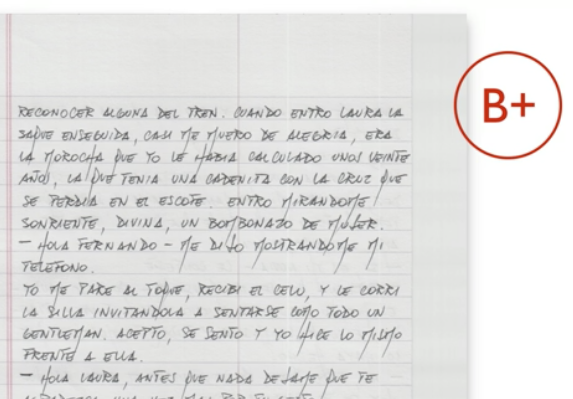 B+
RECONOCER ALGUNA DEL TREN. CUANDO ENTRO LAURA LA
SAQUE ENSEGUIDA, CASI ME MUERO DE ALEGRIA, ERA
LA MOROCHA QUE YO LE HABIA CALCULADO UNOS VEINTE
AÑOS, LA QUE TENIA UNA CADENITA CON LA CRUZ QUE
SE PERDIA EN EL ESCOTE. ENTRO MIRANDOME
SONRIENTE, DIVINA, UN BOMBONAZO DE MUJER.
- HOLA FERNANDO - ME DIJO MOSTRANDOME MI
TELEFONO.
YO ME PARE AL TOQUE, RECIBI EL CELU, Y LE CORRI
LA SILLA INVITANDOLA A SENTARSE COMO TODO UN
GENTLEMAN. ACEPTO, SE SENTO Y YO HICE LO MISMO
FRENTE A ELLA.
- HOLA LAURA, ANTES QUE NADA DEJAME QUE TE